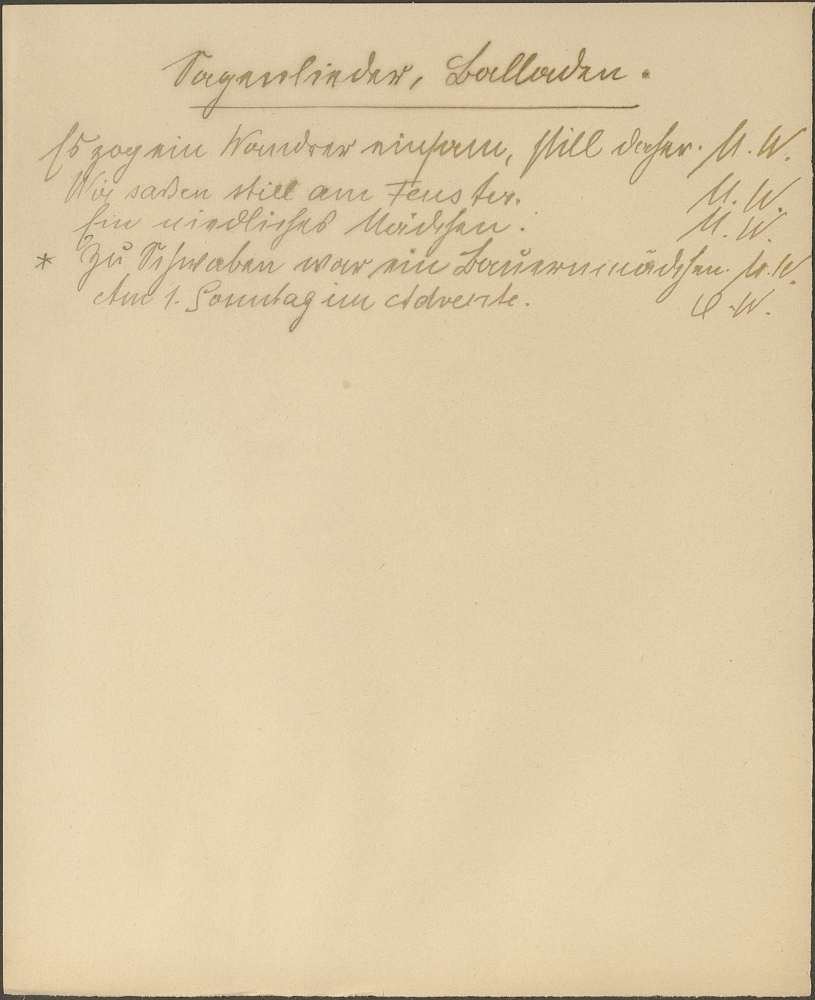 Sagenlieder, Balladen.
Es zog ein Wandrer einsam, still daher. M. W.
Wir saßen still am Fenster. M. W.
Ein niedliches Mädchen. M. W.
* Zu Schwaben war ein Bauernmädchen. M. W.
Am 1. Sonntag im Advente. W.